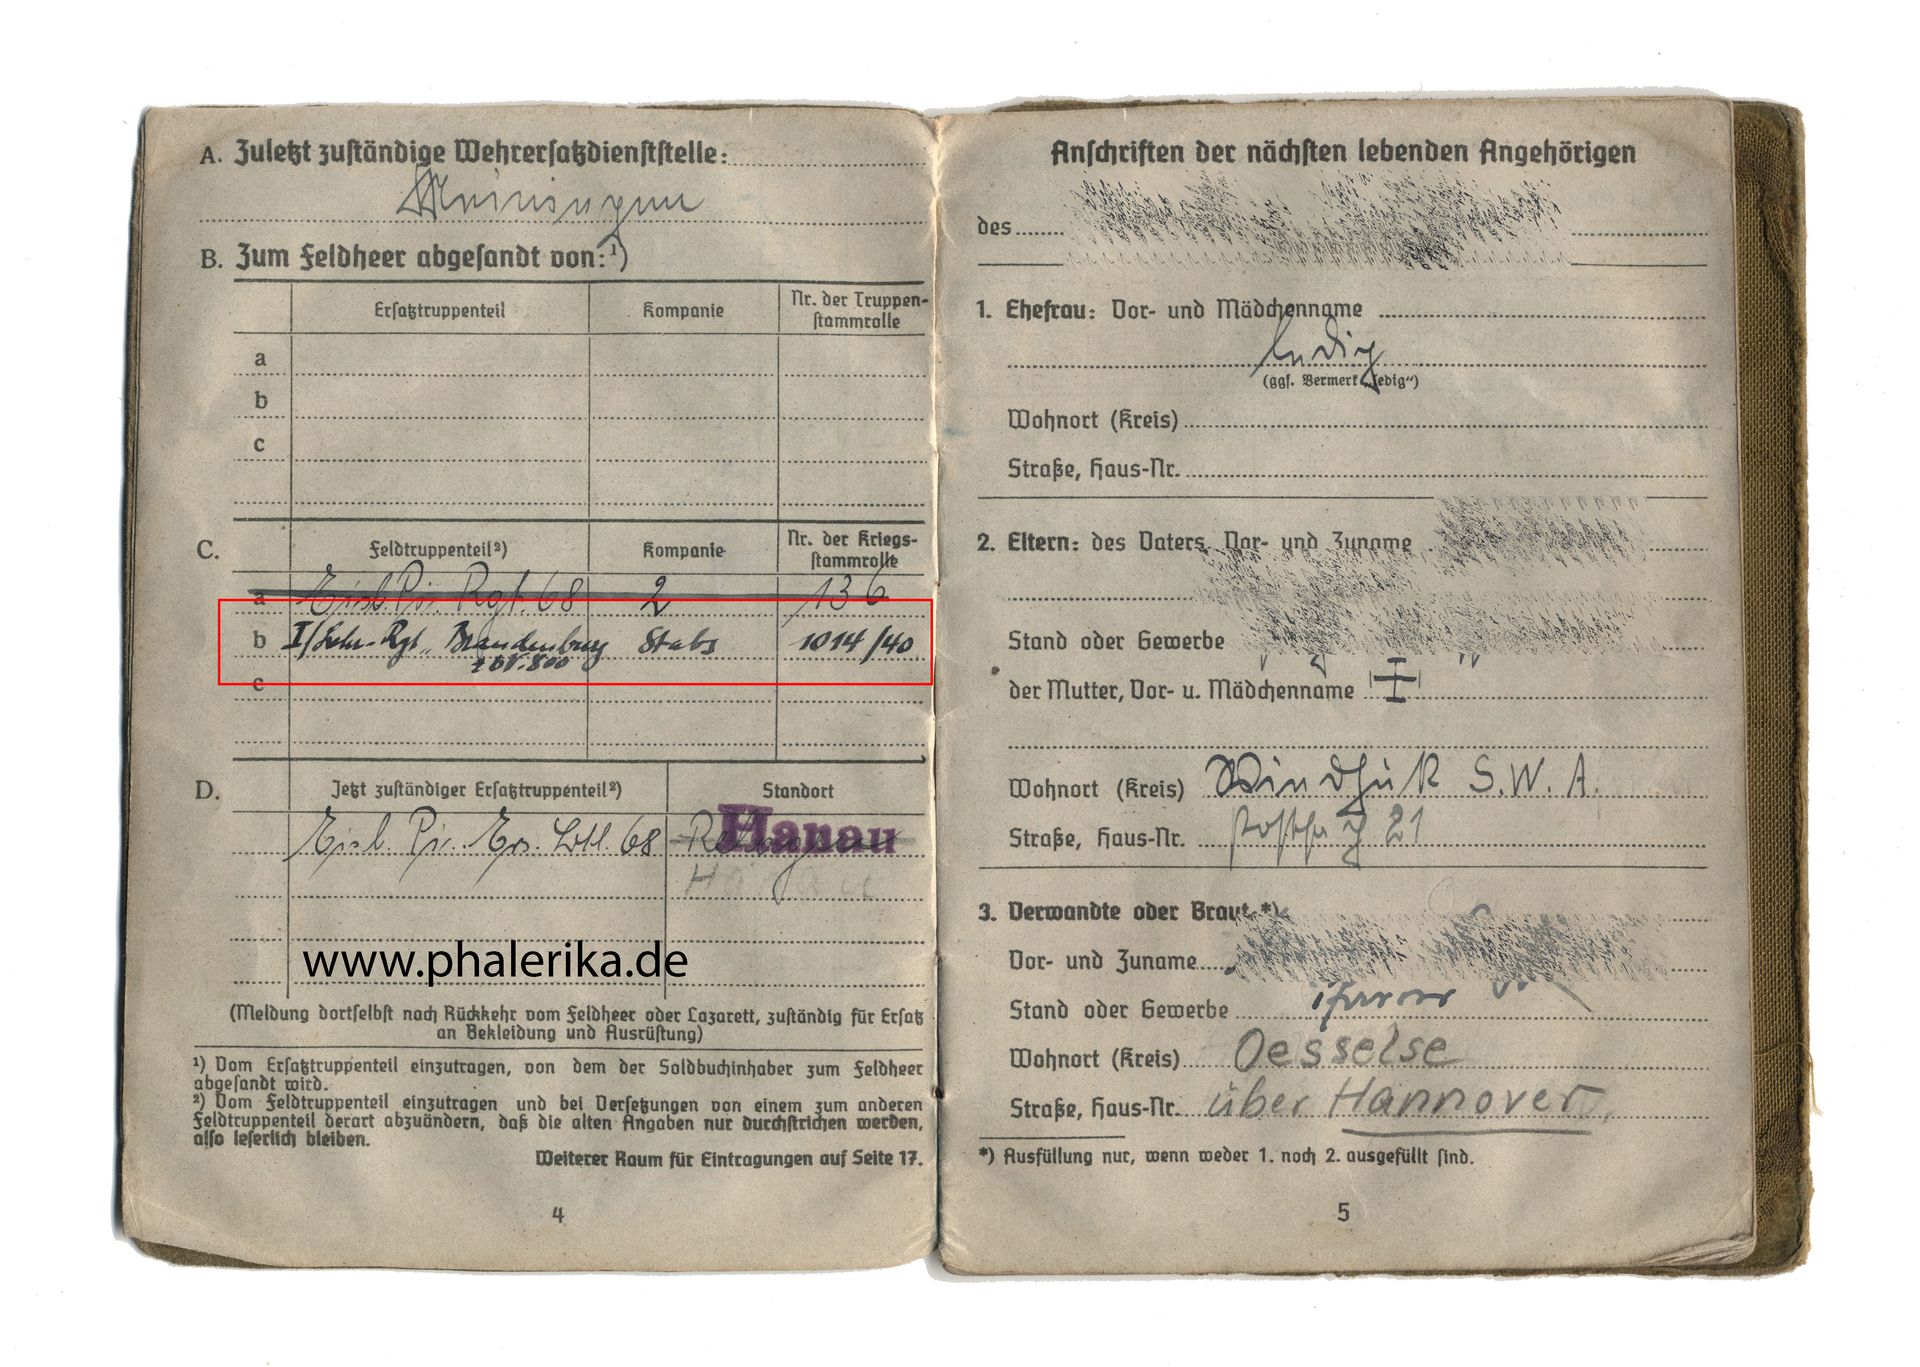 A. Zuletzt zuständige Wehrersatzdienststelle:
Meiningen
B. Zum Feldheer abgesandt von:¹)
Ersatztruppenteil Kompanie Nr. der Truppen-
stammrolle
a
b
c
C. Feldtruppenteil²) Kompanie Nr. der Kriegs-
stammrolle
a Eisb. Pi. Rgt. 68 2 136
b I/Lehr-Rgt. „Brandenburg Stabs 1014/40
z.b.V. 800
c
D. Jetzt zuständiger Ersatztruppenteil²) Standort
Eisb. Pi. Ers. Btl. 68 Hanau
Hanau
www.phalerika.de
(Meldung dortselbst nach Rückkehr vom Feldheer oder Lazarett, zuständig für Ersatz
an Bekleidung und Ausrüstung)
¹) Vom Ersatztruppenteil einzutragen, von dem der Soldbuchinhaber zum Feldheer
abgesandt wird.
²) Vom Feldtruppenteil einzutragen und bei Versetzungen von einem zum anderen
Feldtruppenteil derart abzuändern, daß die alten Angaben nur durchstrichen werden,
also leserlich bleiben.
Weiterer Raum für Eintragungen auf Seite 17.
4
Anschriften der nächsten lebenden Angehörigen
des
1. Ehefrau: Vor- und Mädchenname
ledig
(ggf. Vermerk „ledig“)
Wohnort (Kreis)
Straße, Haus-Nr.
2. Eltern: des Vaters, Vor- und Zuname
Stand oder Gewerbe
der Mutter, Vor- u. Mädchenname
Wohnort (Kreis) Windhuk S.W.A.
Straße, Haus-Nr. Postfach 21
3. Verwandte oder Braut:*)
Vor- und Zuname
Stand oder Gewerbe
Wohnort (Kreis) Oesselse
Straße, Haus-Nr. über Hannover.
*) Ausfüllung nur, wenn weder 1. noch 2. ausgefüllt sind.
5